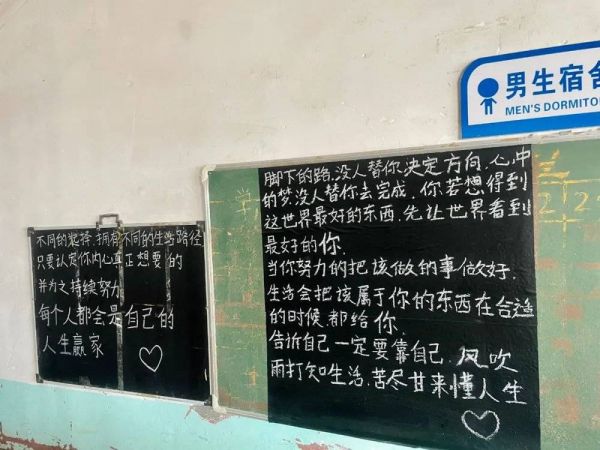 男生宿舍
MEN'S DORMITO
脚下的路,没人替你决定方向,心中
的梦,没人替你去完成,你若想得到
这世界最好的东西,先让世界看到
最好的你.
当你努力的把该做的事做好,
生活会把该属于你的东西在合适
的时候都给你.
告诉自己一定要靠自己,风吹
雨打知生活,苦尽甘来懂人生
不同的选择,拥有不同的生活路径
只要认定你内心真正想要的
并为之持续努力
每个人都会是自己的
人生赢家